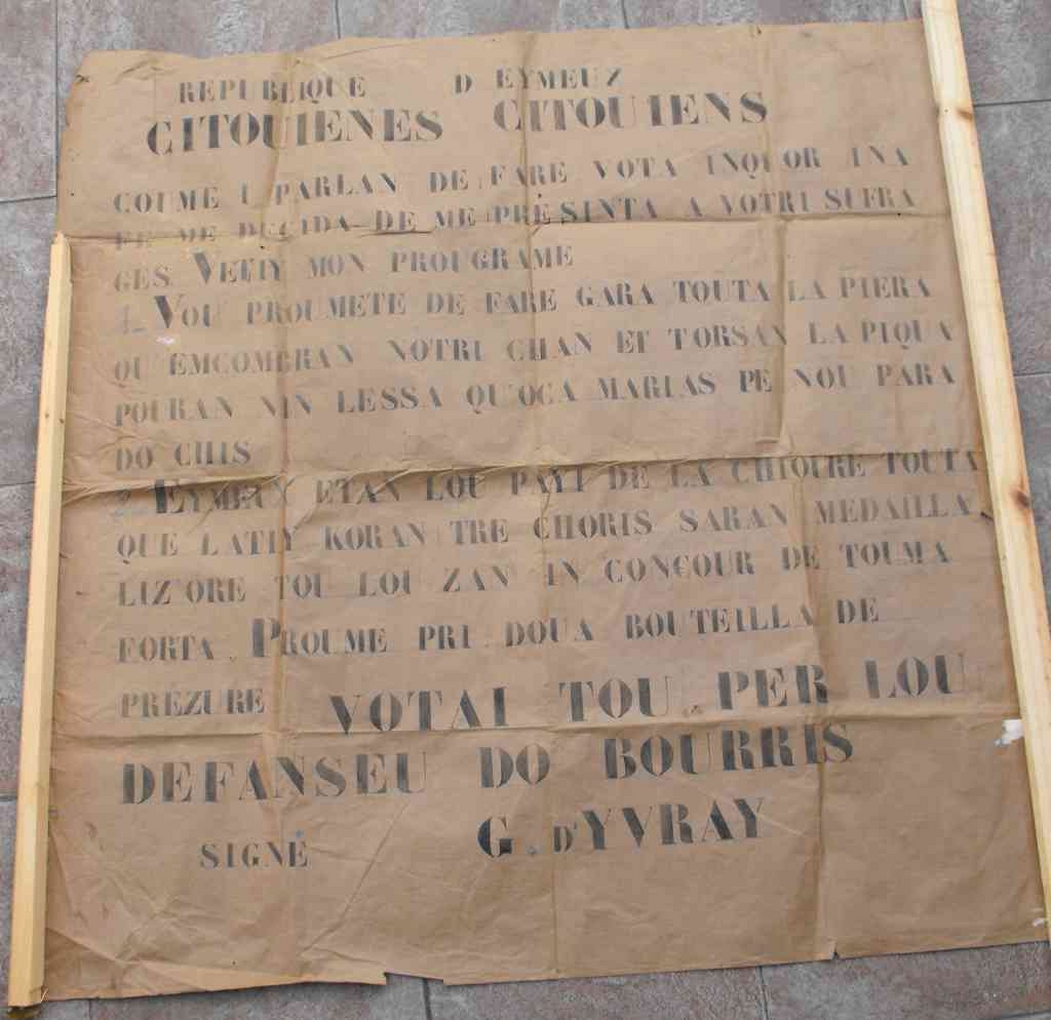 REPUBLIQUE D EYMEUX
CITOUIENES CITOUIENS
COUME I PARLAN DE FARE VOTA INQUOR INA
ME DECIDA DE ME PRESINTA A VOTRI SUFRA
GES VETIY MON PROUGRAME
1_ VOU PROUMETE DE FARE GARA TOUTA LA PIERA
QU EMCOMBRAN NOTRI CHAN ET TORSAN LA PIQUA
POURAN VIN LESSA QU'OCA MARIAS PE NOU PARA
DO CHIS
2_ EYMEUX ETAN LOU PAYI DE LA CHIOURE TOUTA
QUE LATIY KORAN TRE CHORIS SARAN MEDAILLA
LIZ'ORE TOU LOU ZAN IN CONCOUR DE TOUMA
FORTA. PROUME PRI. DOUA BOUTEILLA DE
PREZURE VOTAI TOU PER LOU
DEFANSEU DO BOURRIS
SIGNÉ G. D'YVRAY